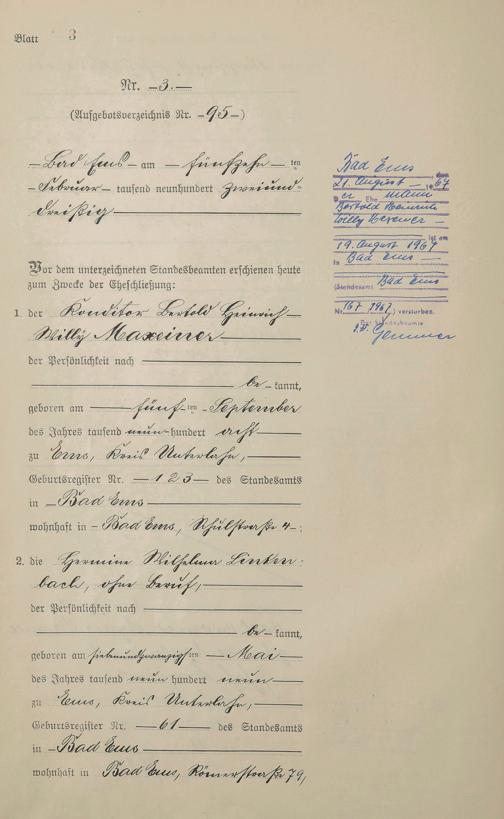 Blatt 3
Nr. 3.
(Aufgebotsverzeichnis Nr. 95)
Bad Ems am fünfzehnten
Februar tausend neunhundert zweiund-
dreißig
Vor dem unterzeichneten Standesbeamten erschienen heute
zum Zwecke der Eheschließung:
1. der Konditor Bertold Heinrich
Willy Maxeiner
der Persönlichkeit nach
be kannt,
geboren am fünften September
des Jahres tausend neunhundert acht
zu Ems, Kreis Unterlahn,
Geburtsregister Nr. 123 des Standesamts
in Bad Ems
wohnhaft in Bad Ems, Schulstraße 4;
2. die Hermine Wilhelma Linken-
bach, ohne Beruf,
der Persönlichkeit nach
be kannt,
geboren am siebenundzwanzigsten Mai
des Jahres tausend neun hundert neun
zu Ems, Kreis Unterlahn,
Geburtsregister Nr. 61 des Standesamts
in Bad Ems
wohnhaft in Bad Ems, Römerstraße 79,
Bad Ems
den 21. August 1967
Der Ehemann
Bertold Heinrich
Willy Maxeiner
ist am
19. August 1967
in Bad Ems
(Standesamt Bad Ems
Nr. 167/1967) verstorben.
Der Standesbeamte